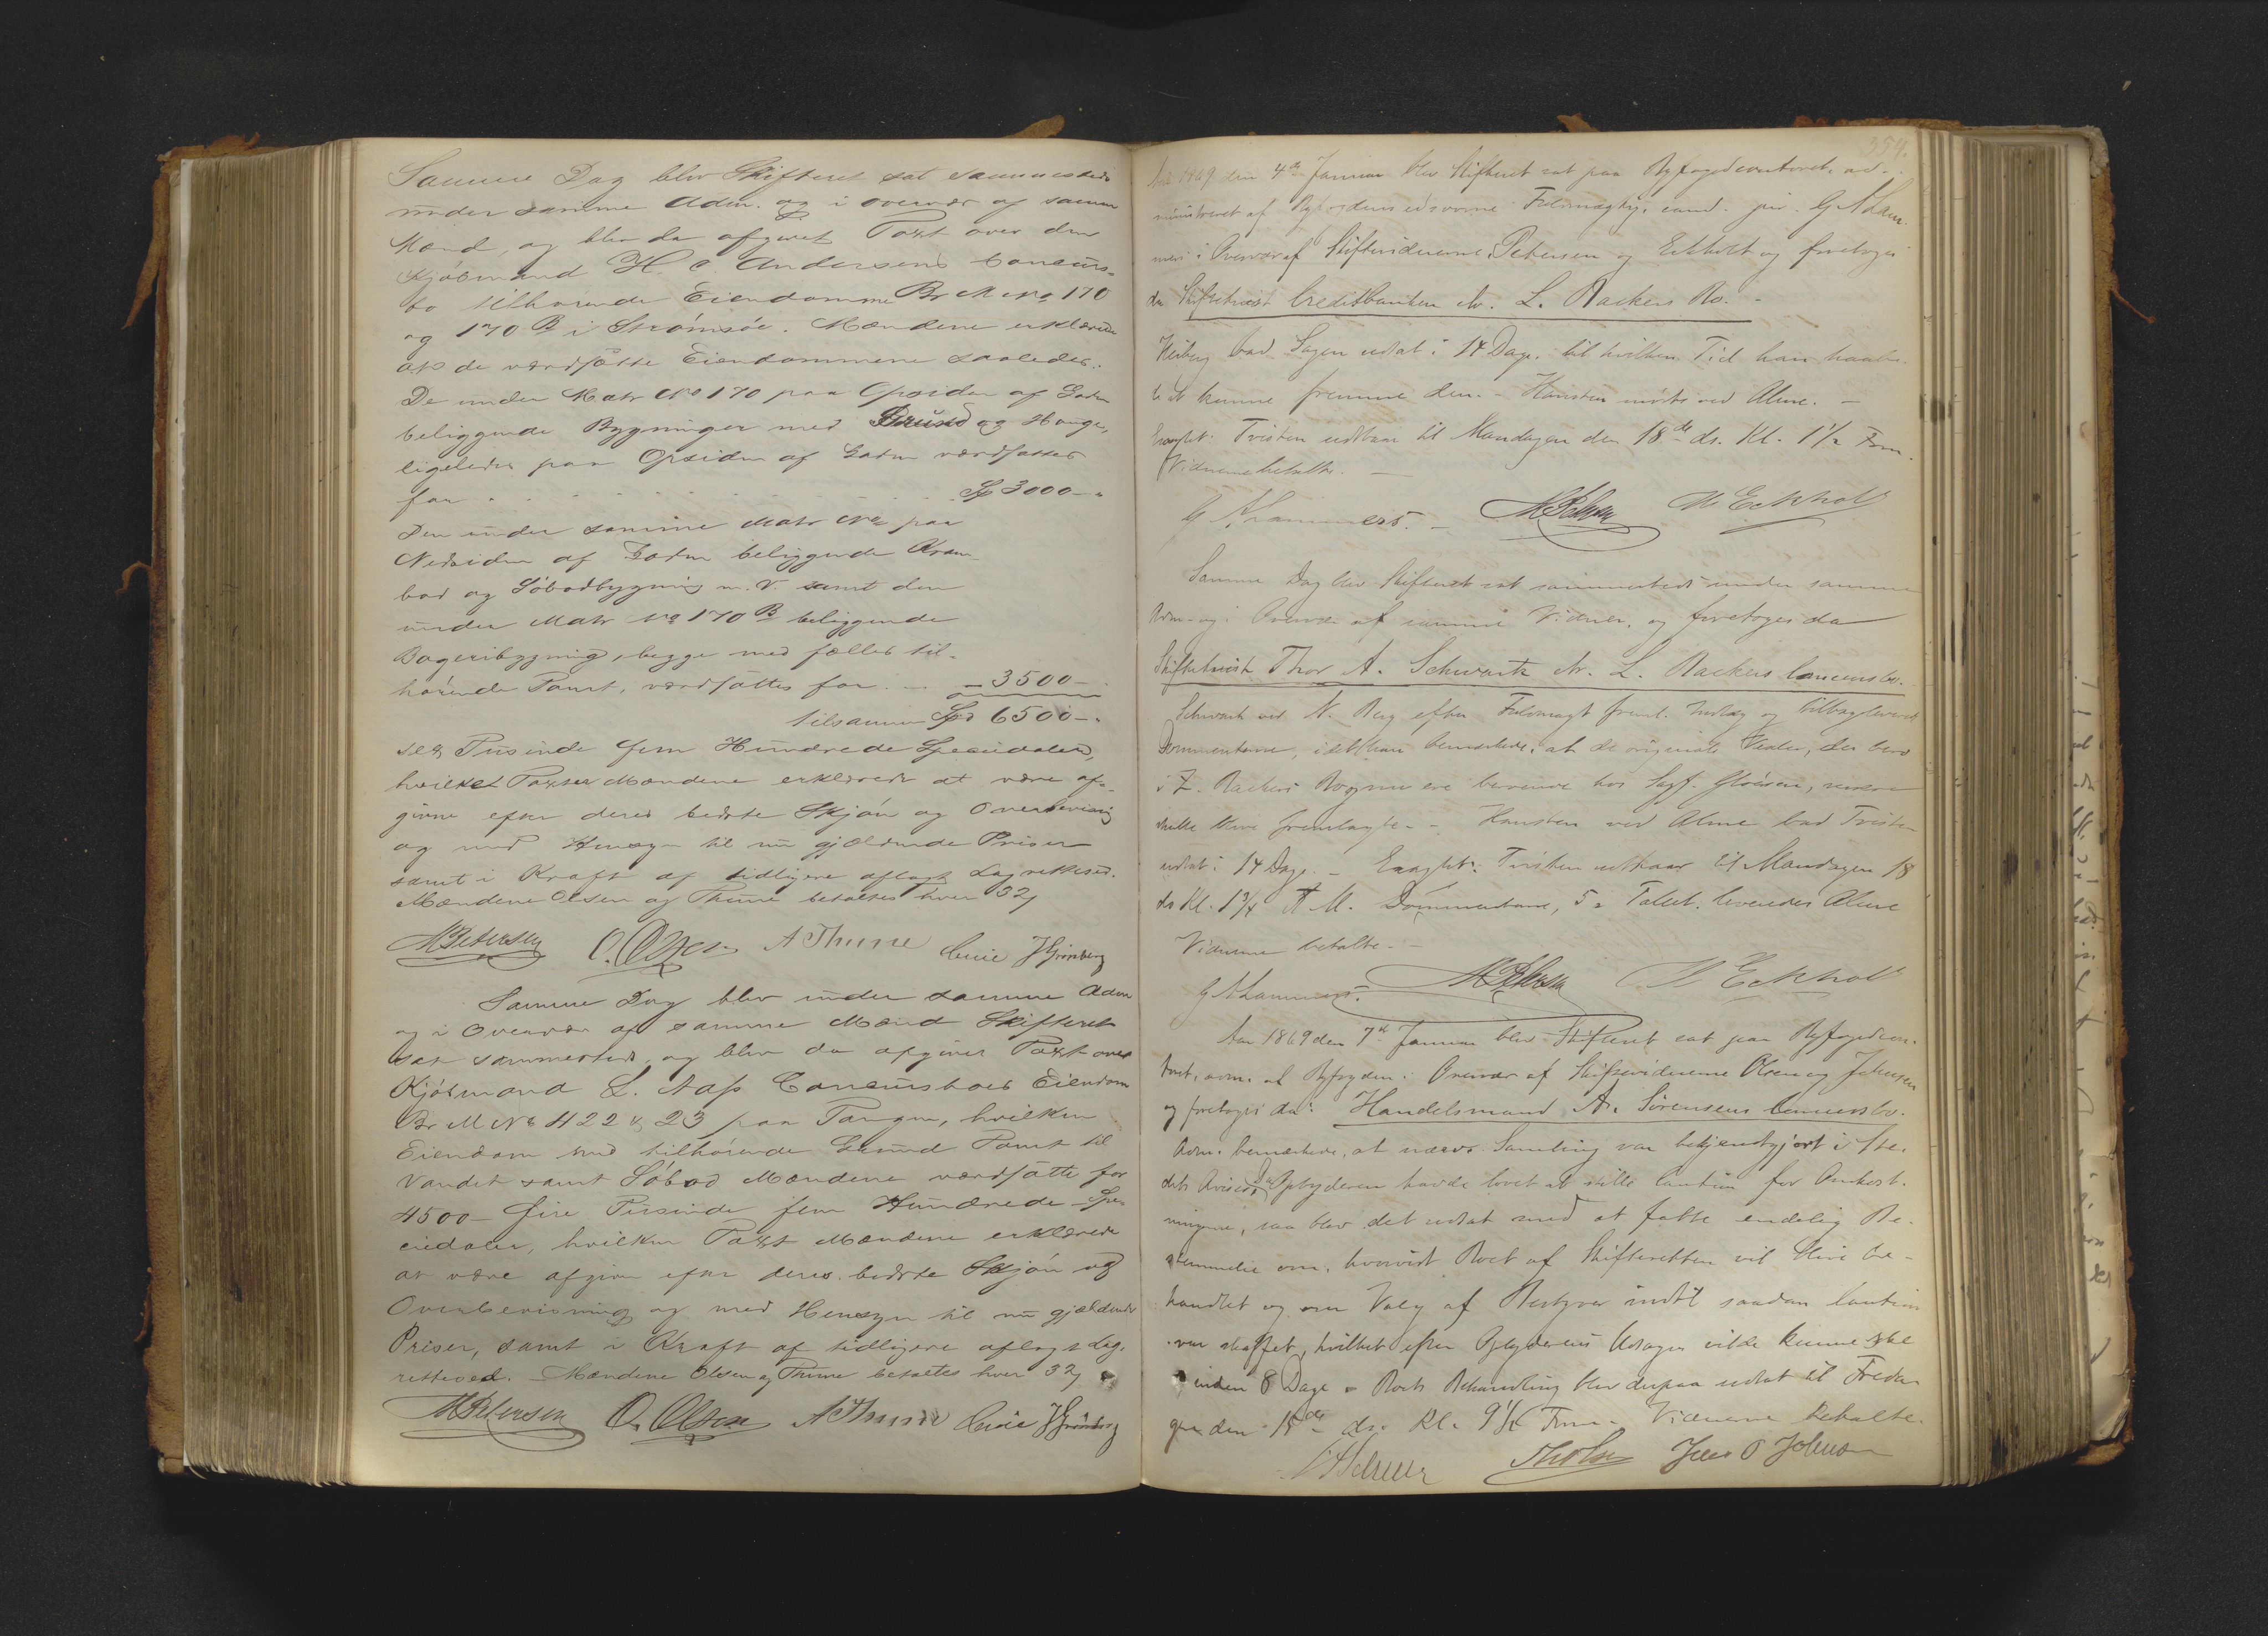 Samme Dag blev Skifteret sat sammesteds
under samme Adm. og i Overvær af samme
Mænd, og blev da afgivet Taxt over den
Kjøbmand H. C. Andersens Concurs-
bo tilhørende Eiendomme Br M No 170
og 170 B i Strømsöe. Mændene erklærede
at de værdsatte Eiendommene saaledes:
De under Matr No 170 paa Opsiden af Gaden
beliggende Bygninger med Grund og Hauge,
ligeledes paa Opsiden af Gaden værdsattes
for . . . . . . Sp 3000 - "
Den under samme Matr No paa
Nedsiden af Gaden beliggende Kram-
bod og Söbodbygning m. V. samt den
under Matr No 170 B beliggende
Bageribygning, begge med fælles til-
hørende Tomt, værdsattes for . . - 3500 -
tilsammen Spd 6500 - "
sex Tusinde fem Hundrede Speciedaler,
hvilket Taxter Mændene erklærede at være af-
givne efter deres bedste Skjøn og Overbevisning
og med Hensyn til nu gjældende Priser
samt i Kraft af tidligere aflagt Lagrettesed.
Mændene Olsen og Thune betaltes hver 32
M Petersen O. Olsen A Thune
Samme Dag blev under samme Adm
og i Overvær af samme Mænd Skifteret
sat sammesteds, og blev da afgivet Taxt over
Kjøbmand L. Aass Concursboes Eiendom
Br M No 422 & 23 paa Tangen, hvilken
Eiendom med tilhørende Grund Tomt til
Vandet samt Söbod Mændene værdsatte for
4500 - fire Tusinde fem Hundrede Spe-
ciedaler, hvilken Taxt Mændene erklærede
at være afgiven efter deres bedste Skjøn og
Overbevisning og med Hensyn til nu gjældende
Priser, samt i Kraft af tidligere aflagt Lag-
rettesed. Mændene Olsen og Thune betaltes hver 32
M Petersen O. Olsen A Thune
354.
Aar 1869 den 4de Januar blev Skifteret sat paa Byfogedcontoret, ad-
ministreret af Byfogdens edsvorne Fuldmægtig, cand. jur. G A Lam-
mers i Overvær af Skiftevidnerne Petersen og Eckholt og foretoges
da Skiftetvist Creditbanken ctr. L. Backers Bo. -
Heiberg bad Sagen udsat i 14 Dage, til hvilken Tid han haabe-
de at kunne fremme den. - Hansten mødte ved Alme. -
Eragtet: Tvisten udstaar til Mandagen den 18de ds. Kl. 1 1/2 Fm.
Vidnerne betalte. -
G A Lammers. - M Petersen H Eckholt
Samme Dag blev Skifteret sat sammesteds under samme
Adm. og i Overvær af samme Vidner, og foretoges da
Skiftetvist Thor A. Schwartz ctr. L. Backers Concursbo.
Schwartz ved N. Berg efter Fuldmagt freml. Indlæg og tilbageleverede
Documenterne, idet han bemærkede, at de originale Vexler, der bero
i L. Backers Bo, beroende hos Sagf.
skulde blive fremlagte. - Hansten ved Alme bad Tvisten
udsat i 14 Dage. - Eragtet: Tvisten udstaar til Mandagen 18
ds Kl. 1 3/4 F. M. Documenterne, 5 Tallet, leveredes Alme
Vidnerne betalte. -
G A Lammers. M Petersen H Eckholt
Aar 1869 den 7de Januar blev Skifteret sat paa Byfogedcon-
toret, adm. af Byfogden i Overvær af Skiftevidnerne Olsen og Johnsen
og foretoges da: Handelsmand A. Sörensens Concursbo.
Adm. bemærkede, at nærv. Samling var bekjendtgjort i Ste-
dets Aviser. Da Opbyderen havde lovet at stille Caution for Omkost-
ningerne, saa blev det udsat med at fatte endelig Be-
stemmelse om, hvorvidt Boet af Skifteretten vil blive be-
handlet og om Valg af Bestyrer indtil saadan Caution
var skaffet, hvilket efter Opbyderens Udsagn vilde kunne ske
inden 8 Dage. Boets Behandling blev derpaa udsat til Freda-
gen den 15de ds. Kl. 9 1/2 Fm. Vidnerne betalte.
Jens O Johnsen